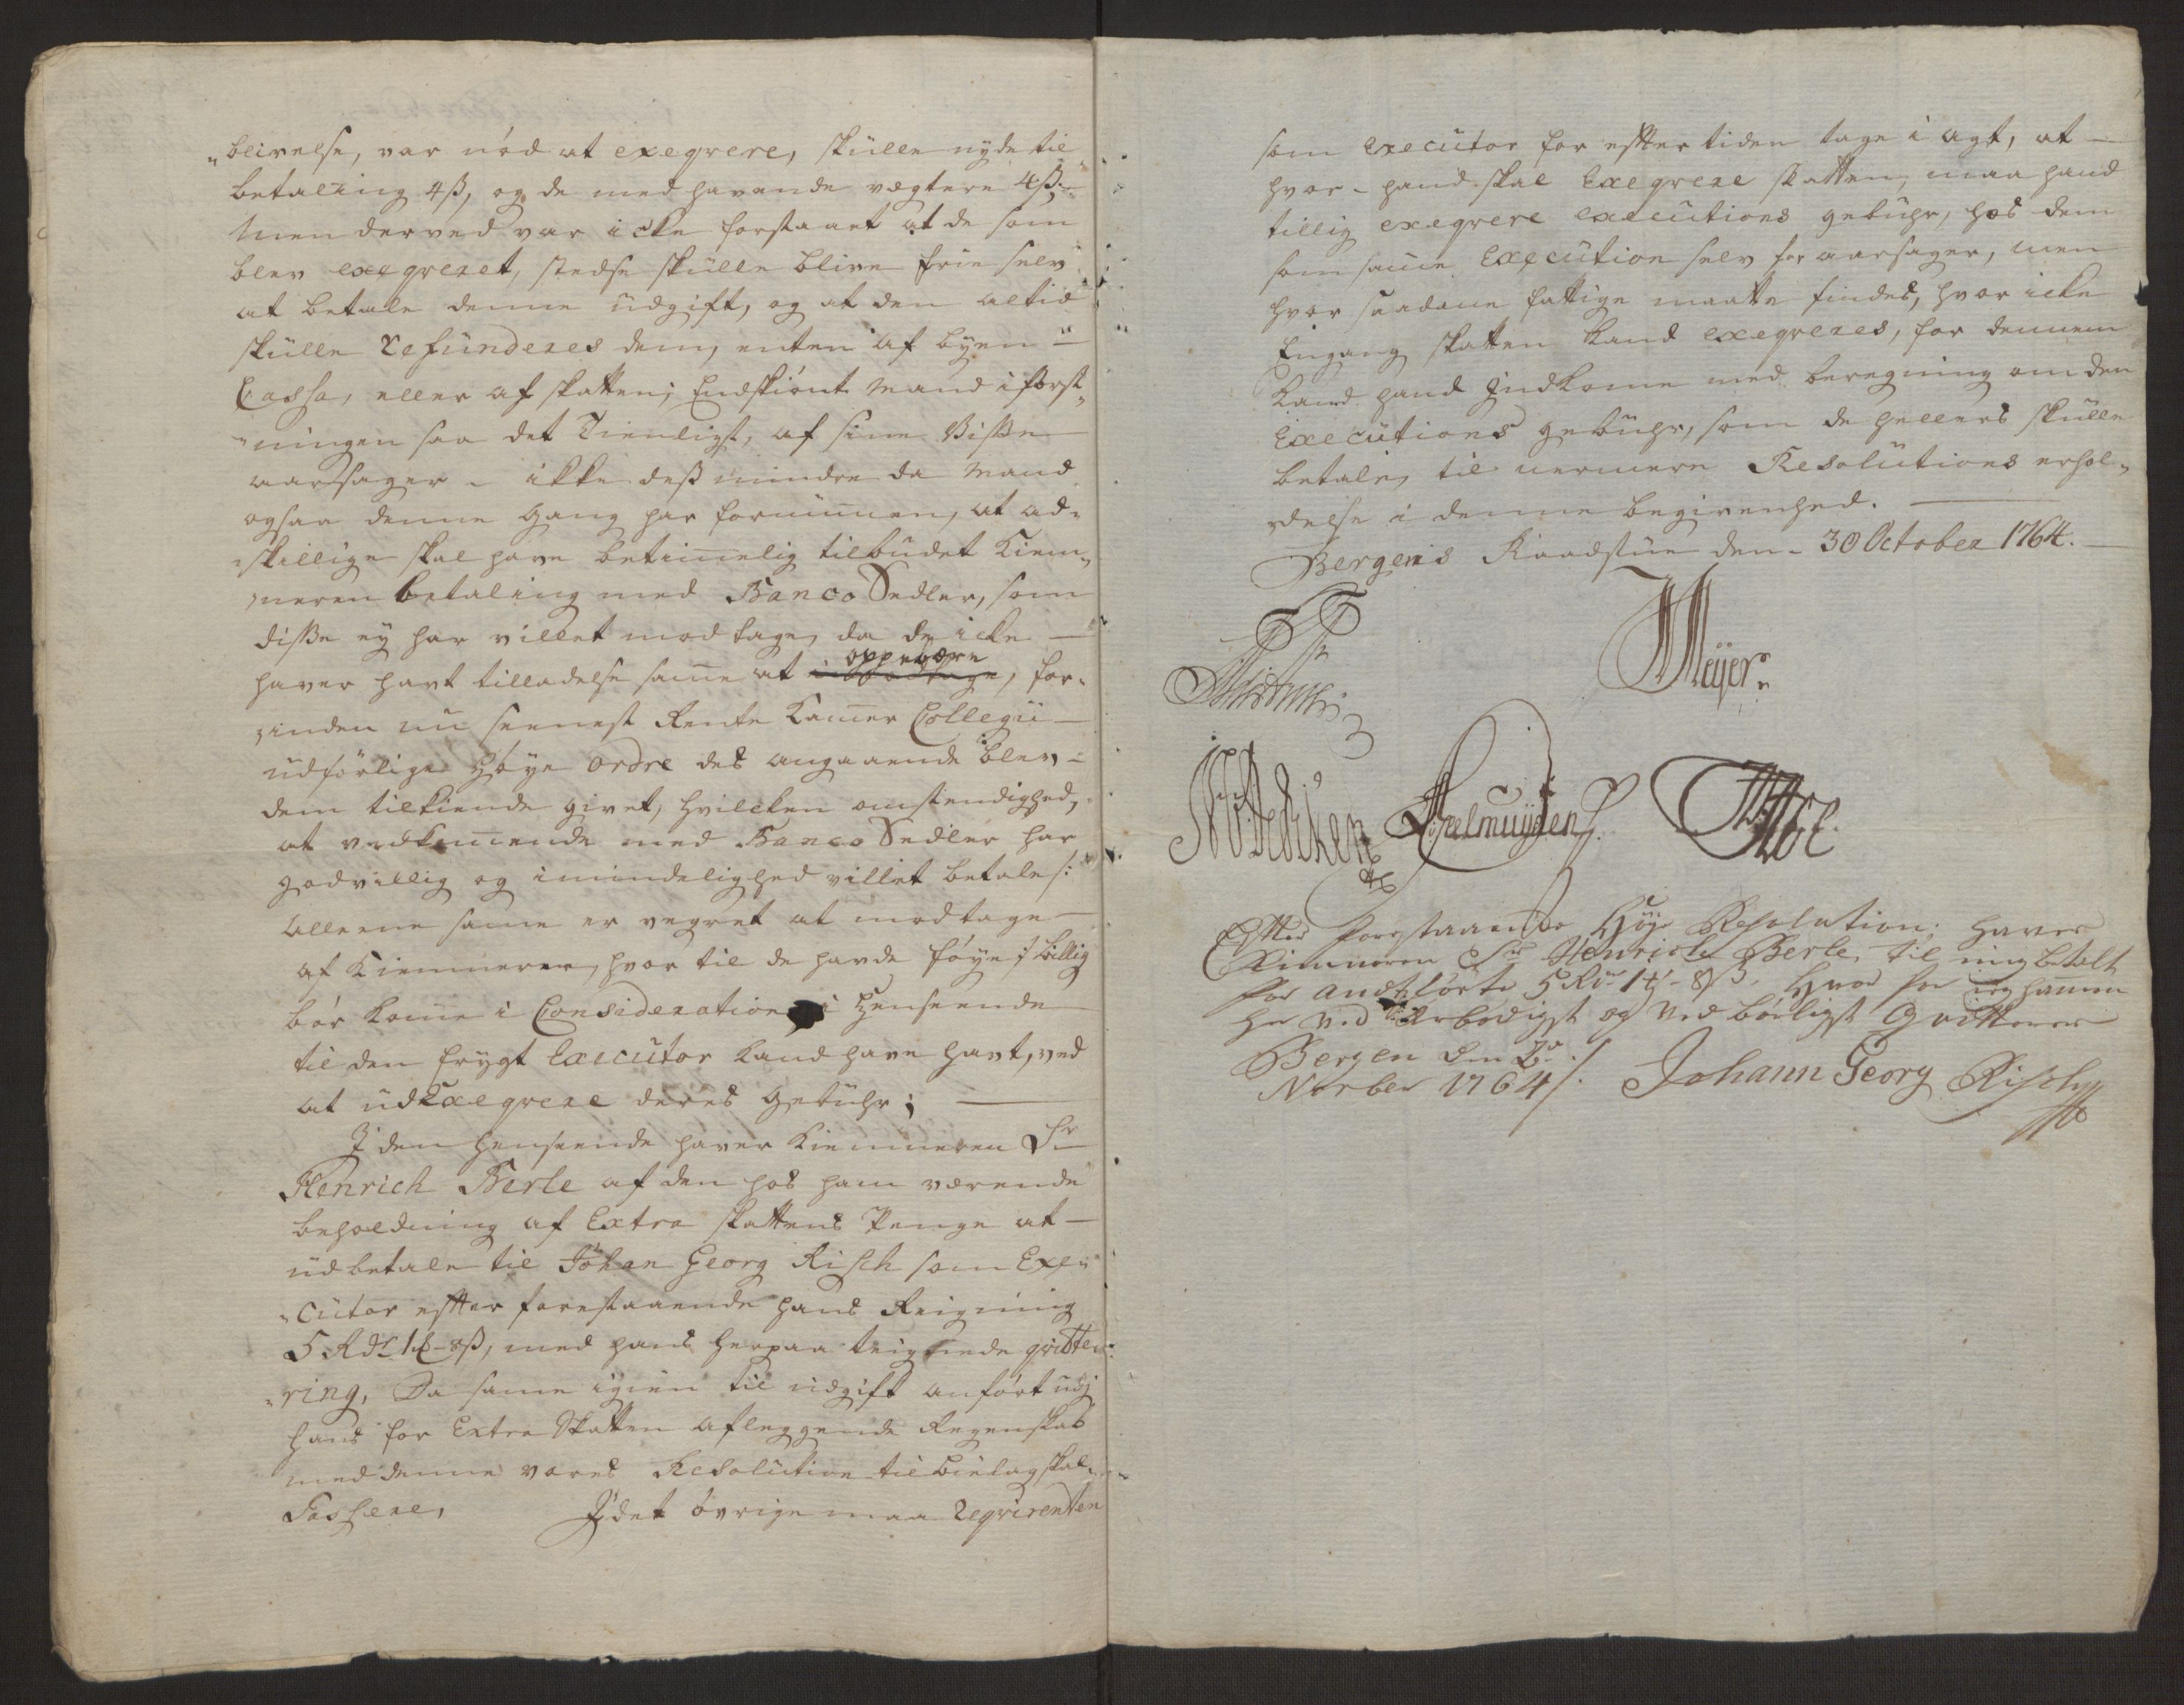 "blivelse, var nød at exeqvere, skulle nyde til
betaling 4ß, og de med havende vægtere 4ß.
Men derved var icke forstaaet at de som
blev exeqveret, stedse skulle blive frie selv
at betale denne udgift, og at den altid
skulle Refunderes dem, enten af byen
Cassa, eller af skatten; Endskiønt mand i først,,
"ningen saa det Tienligst, af sine Visse
aarsager - ikke dess mindre da mand
ogsaa denne Gang har fornummen, at ad-
"skillige skal have betimelig tilbudet Kiem,,
"neren betaling med Banco Sedler, som
disse ey har villet modtage, da de icke
haver havt tilladelse same at oppebære, for-
"inden nu seenest Rente Kamer Collegii
udførlige Høye ordre des angaaende blev
dem tilkiende givet, hvilcken omstendighed,
at vedkommende med Banco Sedler har
godvillig og i mindelighed villet betale /:
alleene same er vegret at modtage
af Kiemneren, hvor til de havde føye :/ billig
bør komme i Consideration i Henseende
til den frygt Executor kand have havt, ved
at udExeqvere deres Gebuhr;
I den henseende haver Kiemneren Sr
Henrich Berle af den hos ham værende
beholdning af Extra skattens Penge at
udbetale til Johan Georg Risch som Exe
"cutor efter forestaaende hans Reigning
5 Rdr 1 - 8ß, med hans herpaa teignede qvitte
"ring, Da same igien til udgift anført udj
hans for Extra Skatten aflæggende Regenskab
med denne vores Resolution til bielag skal
Passere, I det øvrige maa Reqvirenten
som Executor for efftertiden tage i agt, at
hvor hand skal Exeqvere skatten, maa hand
tillig exeqvere executions gebuhr, hos dem
som same Execution selv foraarsager, men
hvor saadane fattige maatte findes, hvor icke
Engang skatten kand exeqveres, for dennem
kand hand Indkome med beregning om den
Executions gebuhr, som de hellers skulle
betale, til nermere Resolutions erhol,,
"delse i denne begivenhed.
Bergens Raadstue den 30 October 1764.
Meyer
Fredriksen Hjelmuijden
Effter forestaaende Høye Resolution haver
Kiemneren Sr Henrich Berle, til mig betalt
for andførte 5 Rdr 1 - 8ß. Hvor for ieg hannem
her ved Ærbødigst og ved børligst Qvitterer
Bergen den 2
Novber 1764 /. Johann Georg Risch